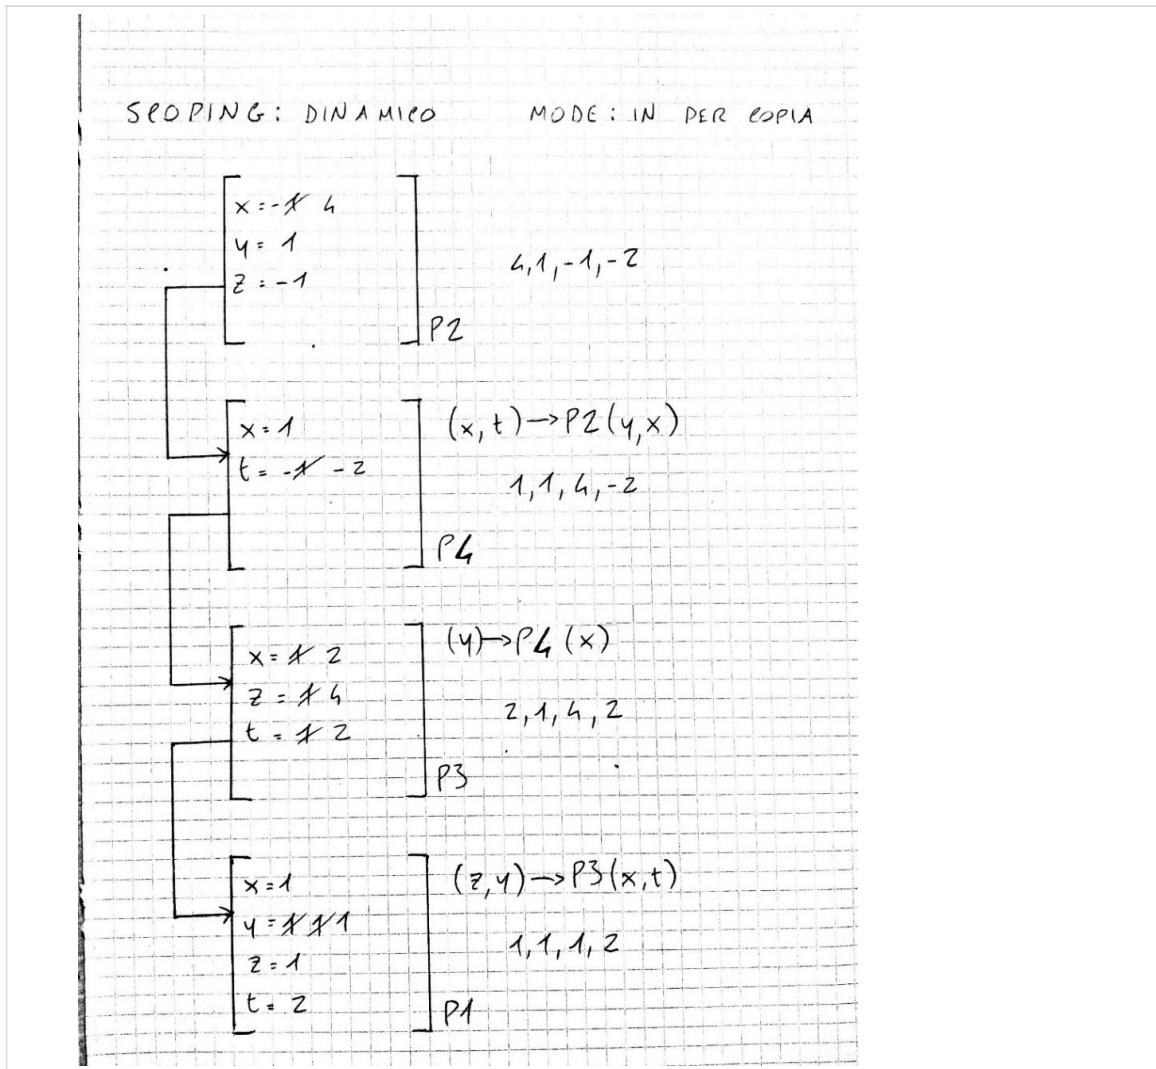 SCOPING: DINAMICO MODE: IN PER COPIA
x = -1 4
y = 1
z = -1
4,1,-1,-2
P2
x = 1
t = -1 -2
(x,t)→P2(y,x)
1,1,4,-2
P4
x = 1 2
z = 1 4
t = 1 2
(y)→P4(x)
2,1,4,2
P3
x = 1
y = 1 1 1
z = 1
t = 2
(z,y)→P3(x,t)
1,1,1,2
P1